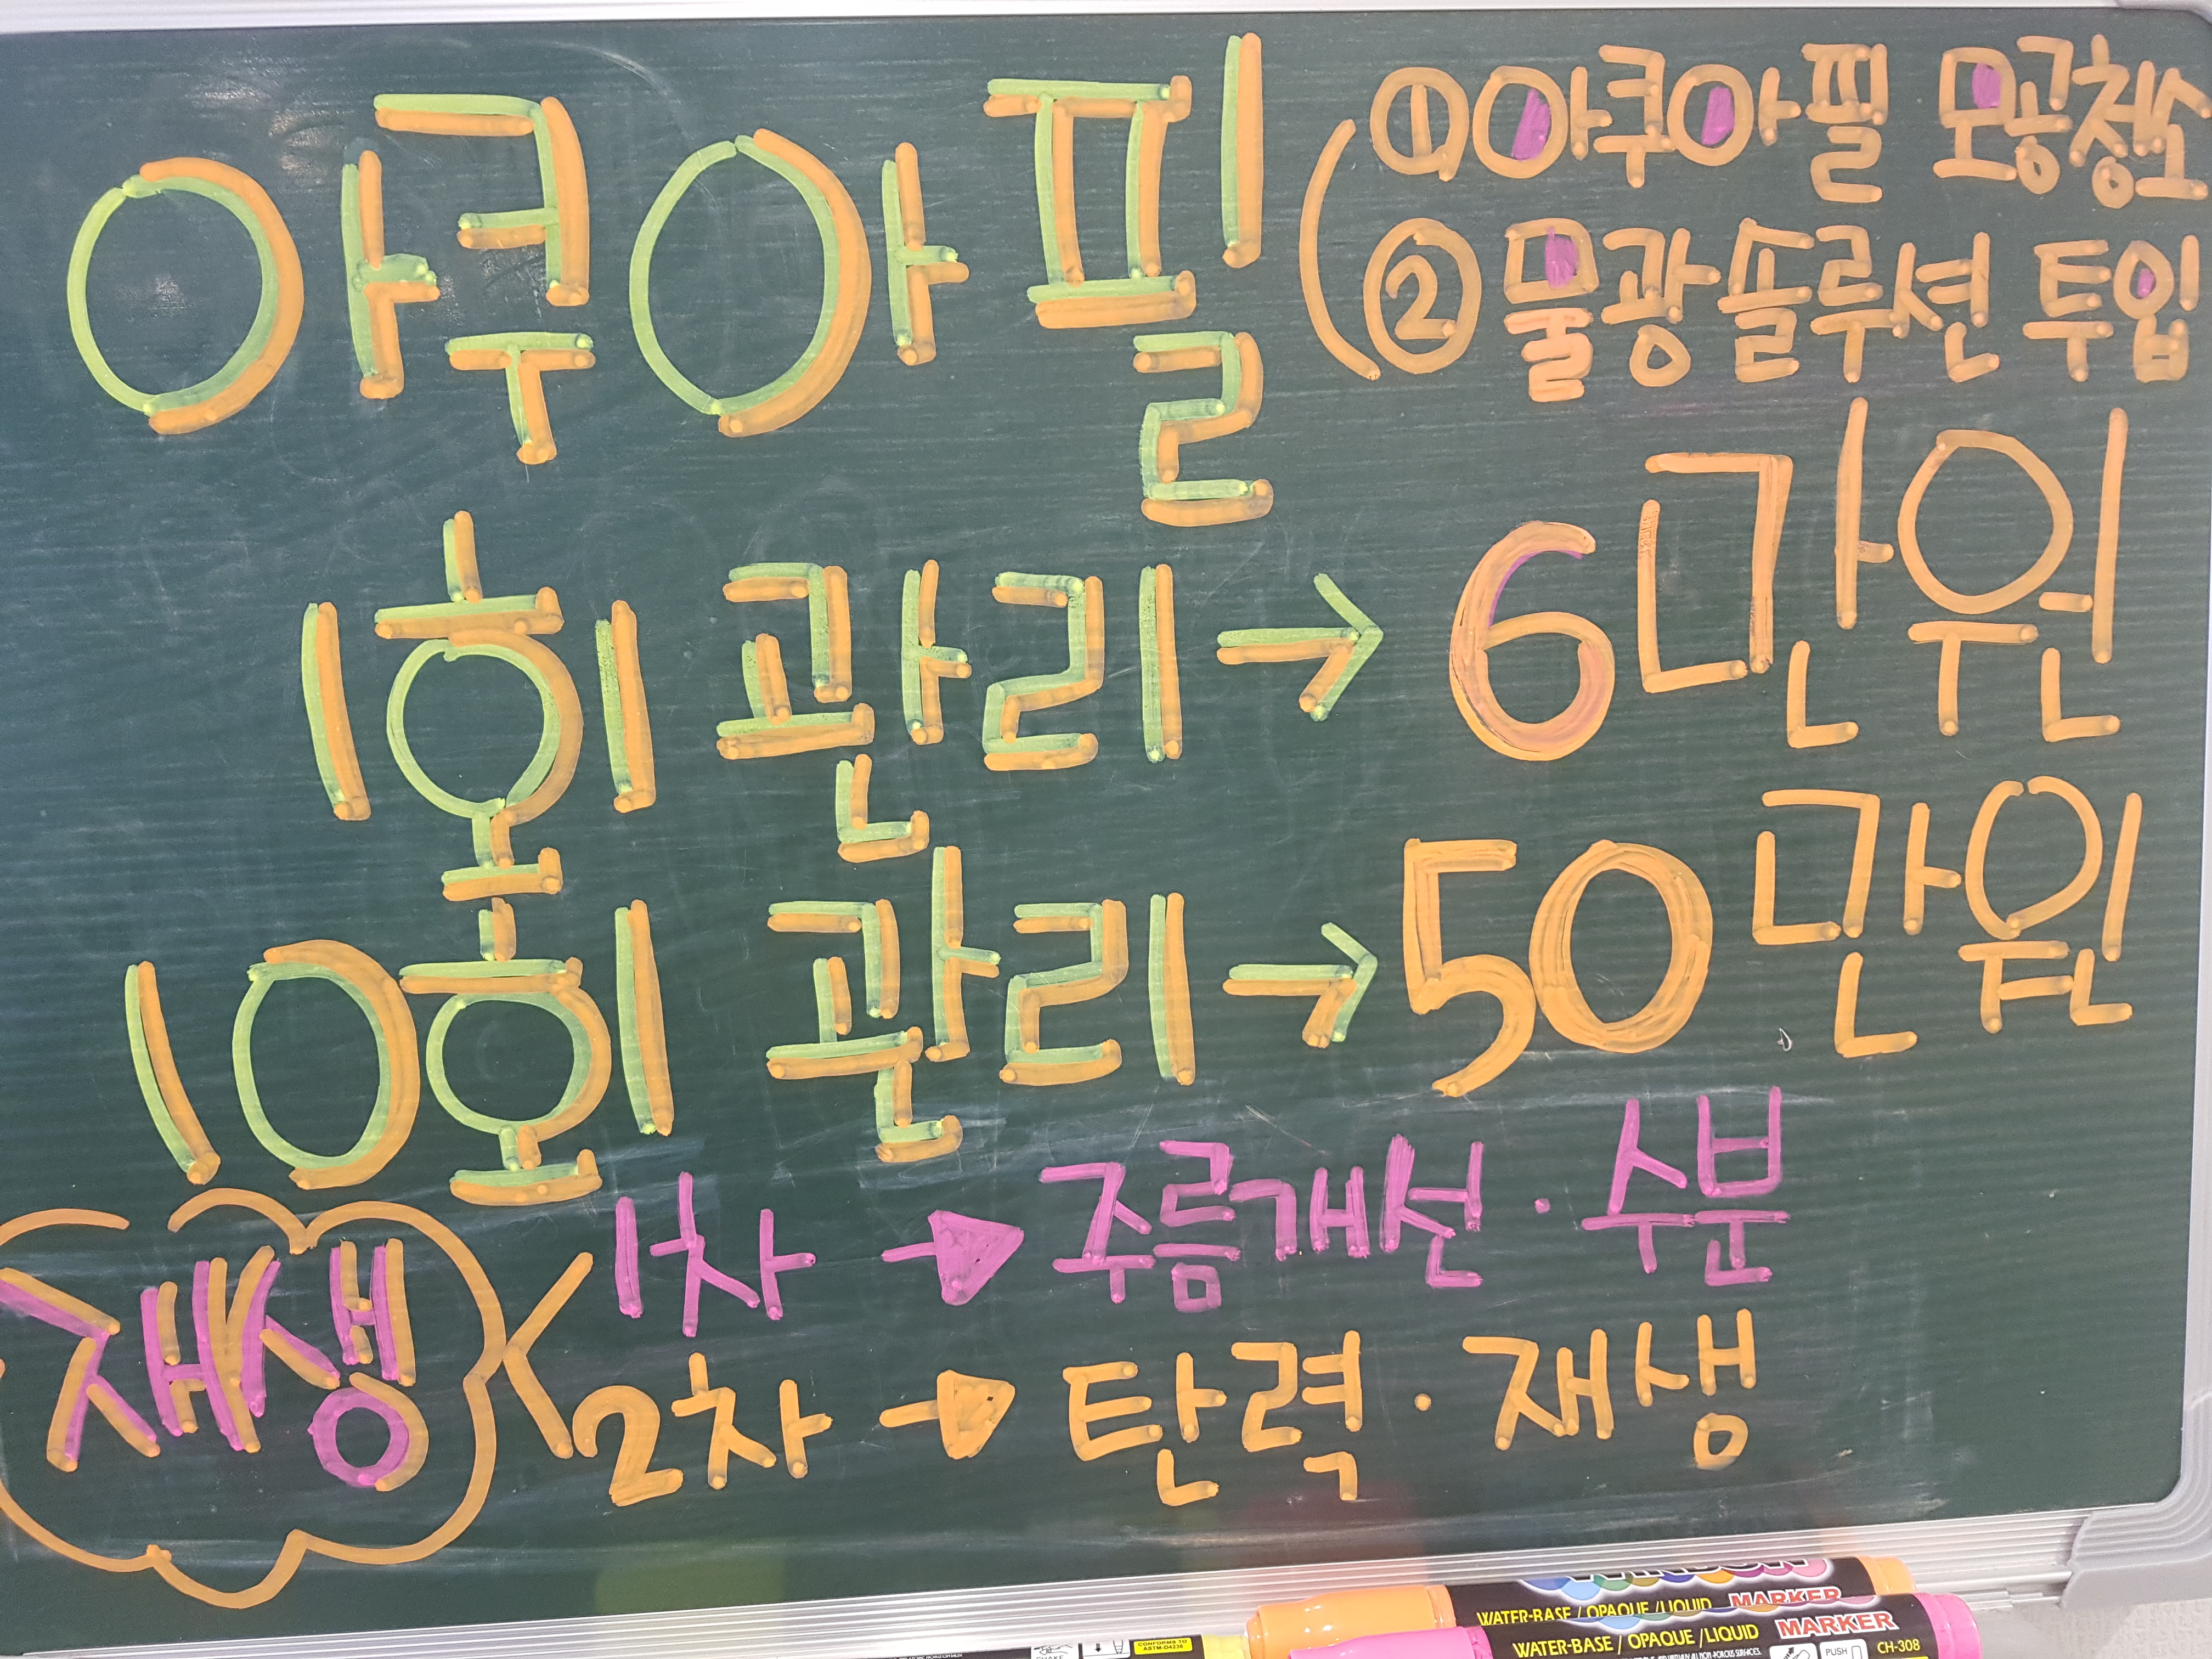 아쿠아필 (① 아쿠아필 모공청소
② 물광솔루션 투입
1회 관리 → 6만원
10회 관리 → 50만원
재생 < 1차 → 주름개선 · 수분
2차 → 탄력 · 재생
MARKER
WATER-BASE / OPAQUE / LIQUID
MARKER
WATER-BASE / OPAQUE / LIQUID
PUSH CH-308
CONFORMS TO
ASTM-D4236